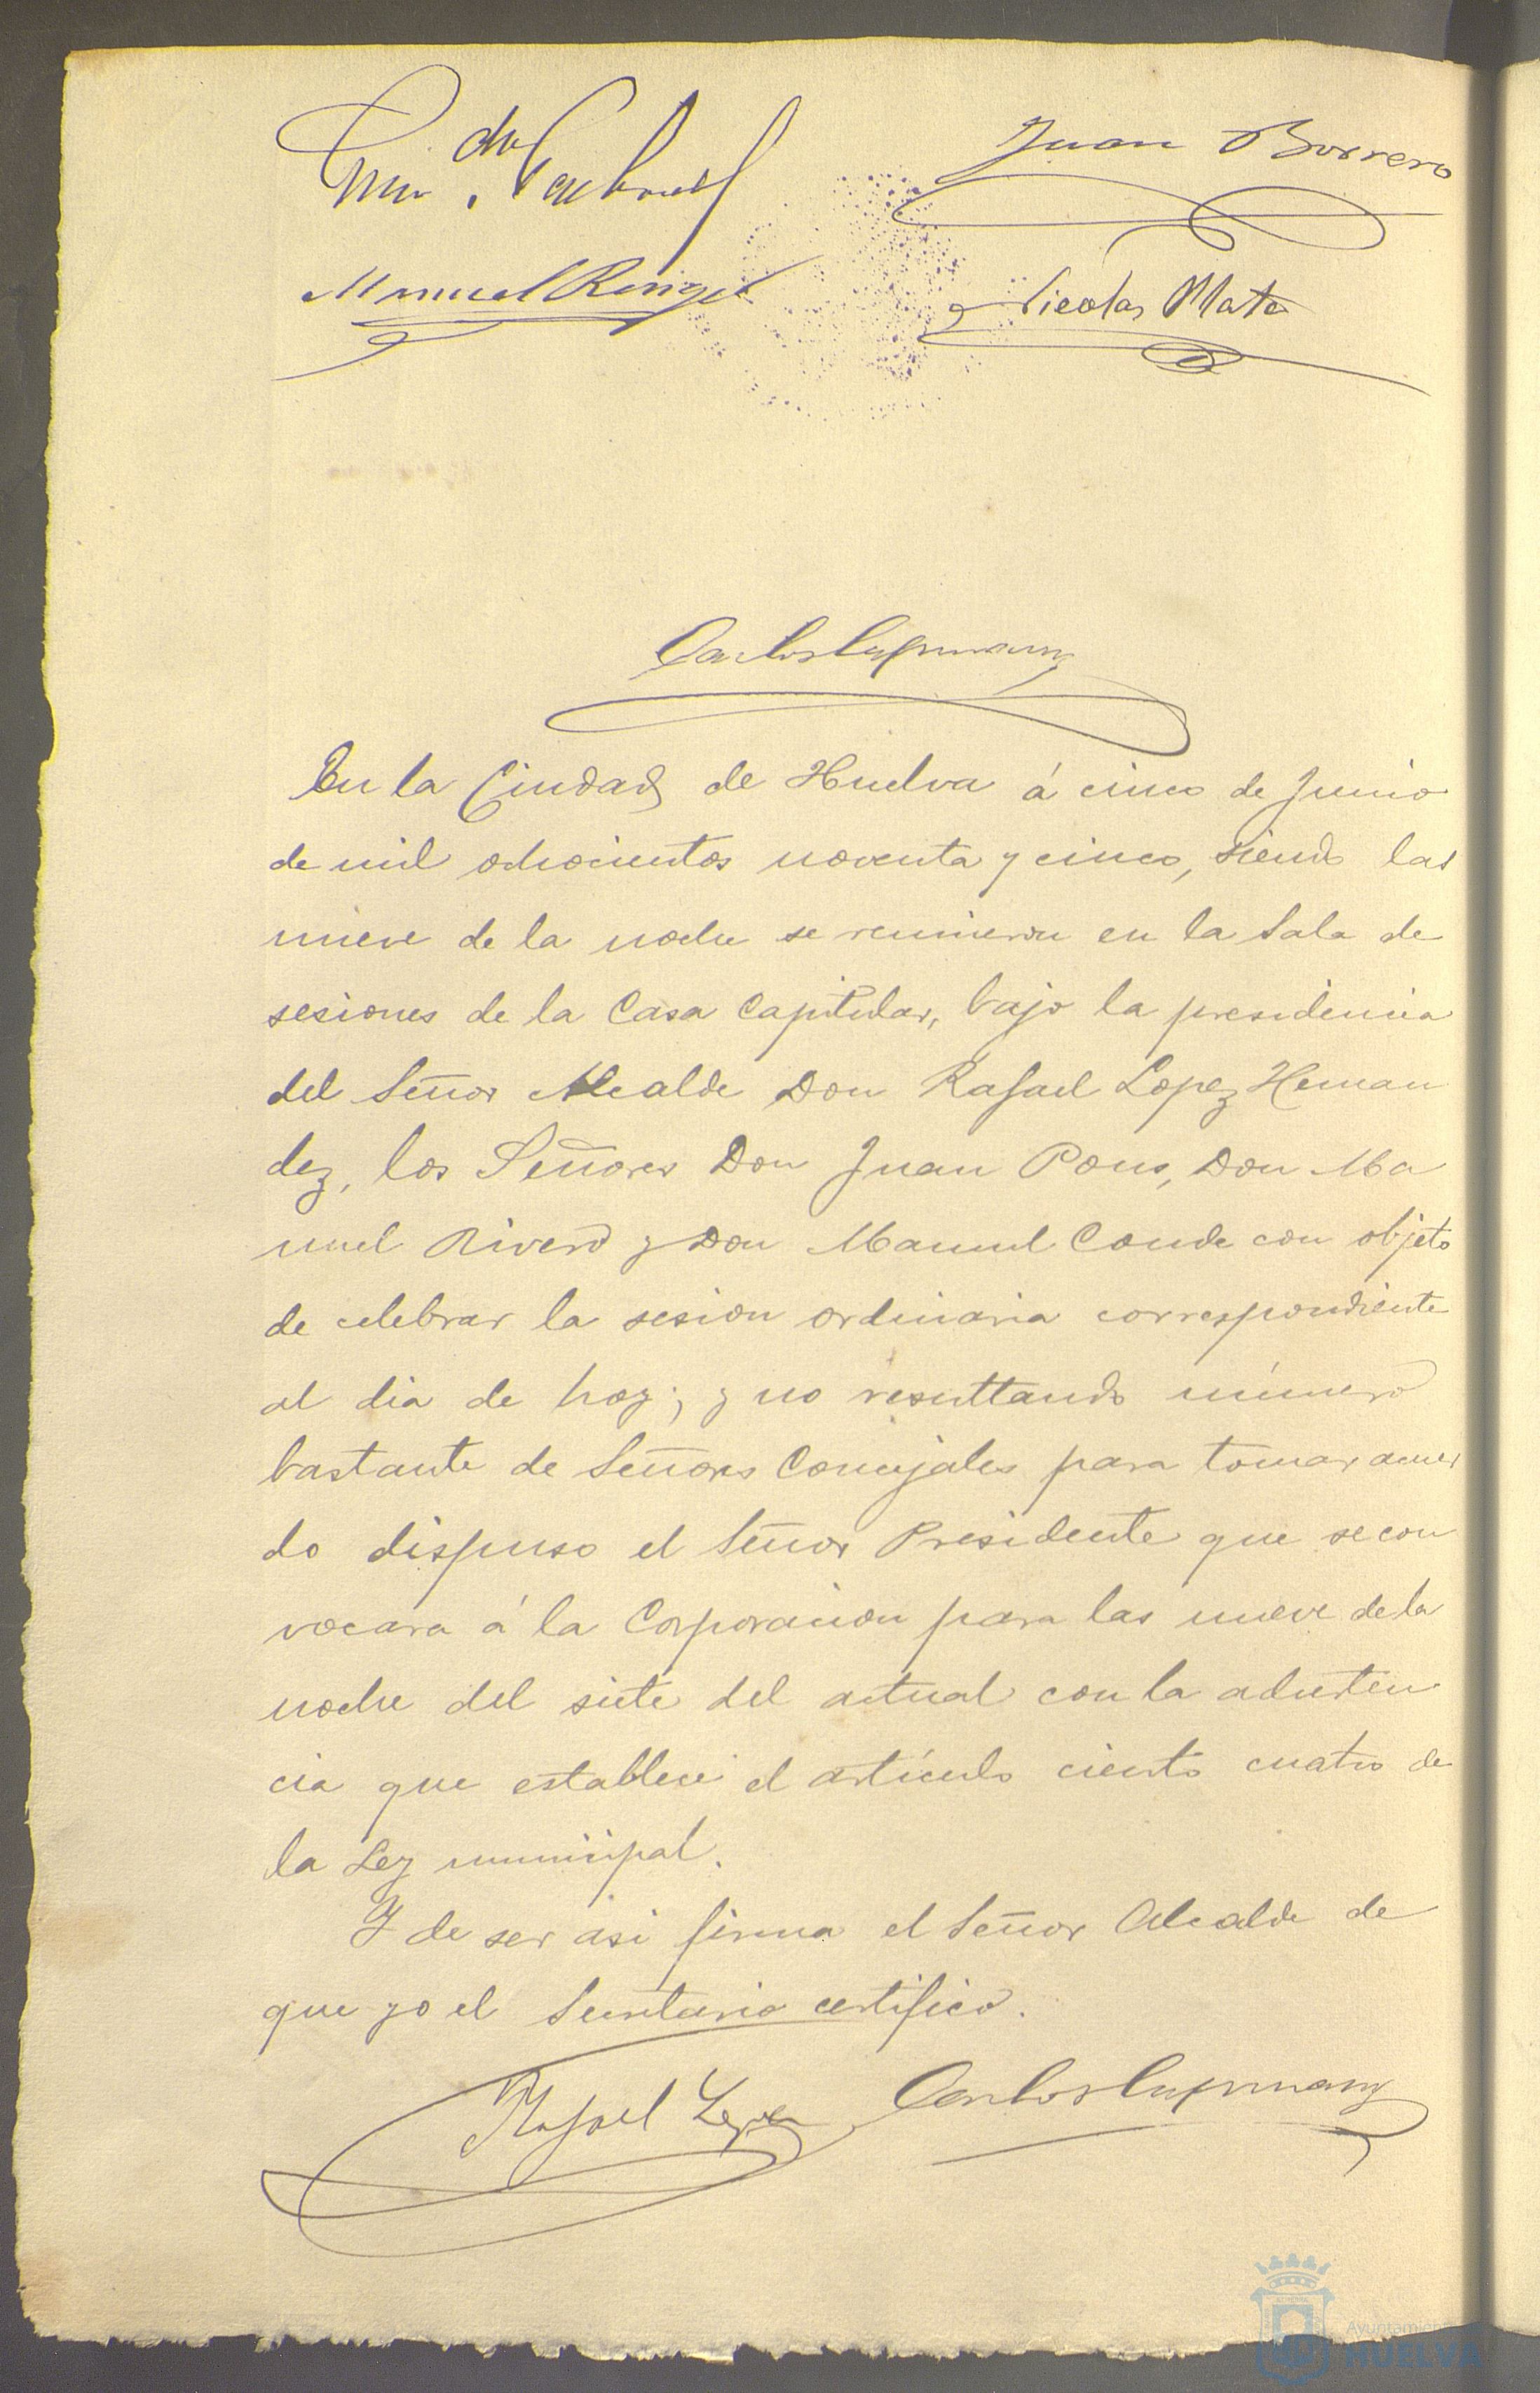 Juan Borrero
Manuel Rangel
Nicolas Mata
Carlos
En la Ciudad de Huelva á cinco de Junio
de mil ochocientos noventa y cinco, siendo las
nueve de la noche se reunieron en la Sala de
sesiones de la Casa Capitular, bajo la presidencia
del Señor Alcalde Don Rafael Lopez Hernan
dez, los Señores Don Juan Pons, Don Ma
nuel Rivero y Don Manuel Conde con objeto
de celebrar la sesion ordinaria correspondiente
al dia de hoy; y no resultando número
bastante de Señores Concejales para tomar acuer
do dispuso el Señor Presidente que se con
vocara á la Corporacion para las nueve de la
noche del siete del actual con la adverten
cia que establece el artículo ciento cuatro de
la Ley municipal.
Y de ser asi firma el Señor Alcalde de
que yo el Secretario certifico.
Rafael Lopez Carlos
Ayuntamien
HUELVA